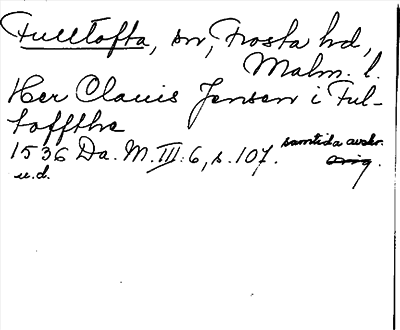 Fulltofta, sn, Frosta hd,
Malm. l.
Her Clauis Jensen i Ful-
toffthe
1536 Da. M. III: 6, s. 107. samtida avskr.
orig.
u.d.